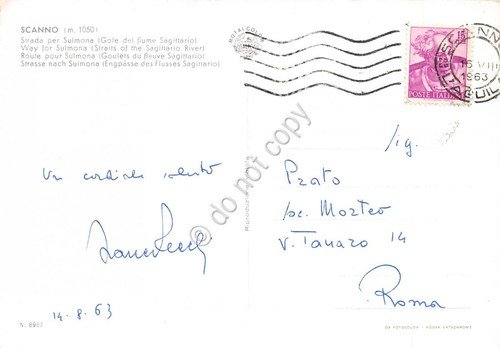 SCANNO (m. 1050)
Strada per Sulmona (Gole del fiume Sagittario)
Way for Sulmona (Straits of the Sagittario River)
Route pour Sulmona (Goulets du fleuve Sagittario)
Strasse nach Sulmona (Engpasse des Flusses Sagittario)
15
POSTE ITALIANE
SCANNO
16 VIII
1963
do not copy
Un cordiale saluto
14-8-63
Sig.
Prato
pc. Morteo
V. Tanaro 14
Roma
N. 8967
DA FOTOCOLOR - KODAK EKTACHROME